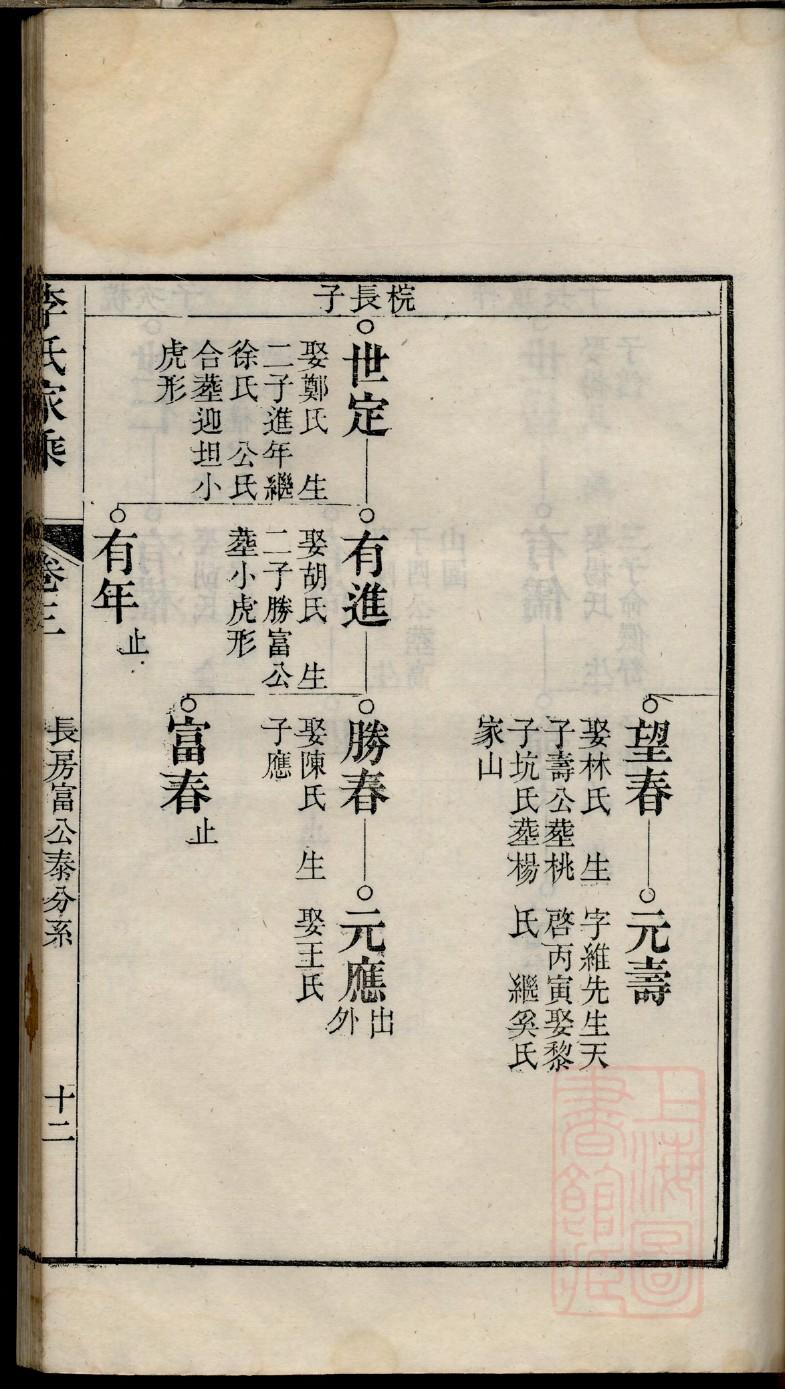 望春
娶林氏 生
子壽公塟桃
子坑氏塟楊
家山
元壽
字維先生天
啓丙寅娶黎
氏 繼奚氏
梡長子
世定
娶鄭氏 生
二子進年繼
徐氏 公氏
合塟迎坦小
虎形
有進
娶胡氏 生
二子勝富公
塟小虎形
勝春
娶陳氏 生
子應
元應
出外
娶王氏
富春
止
有年
止
李氏家乘
卷三
長房富公泰分系
十二
上海圖
書館藏